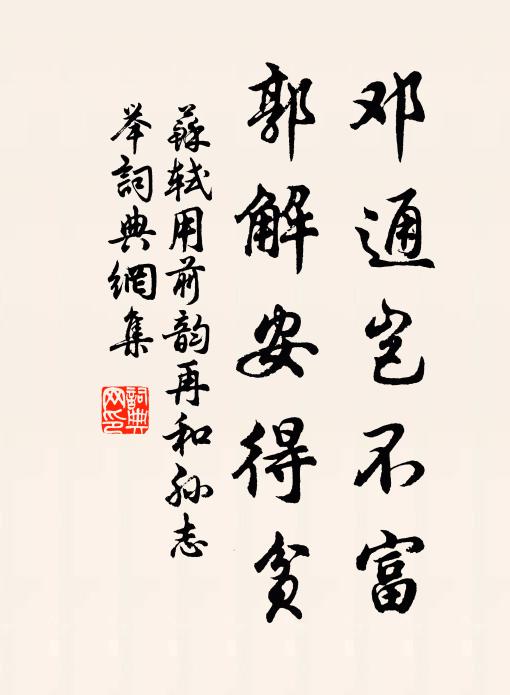 邓通岂不富
郭解安得贫
蘇軾用前韵再和孙志
举詞典網集
詞典
网印